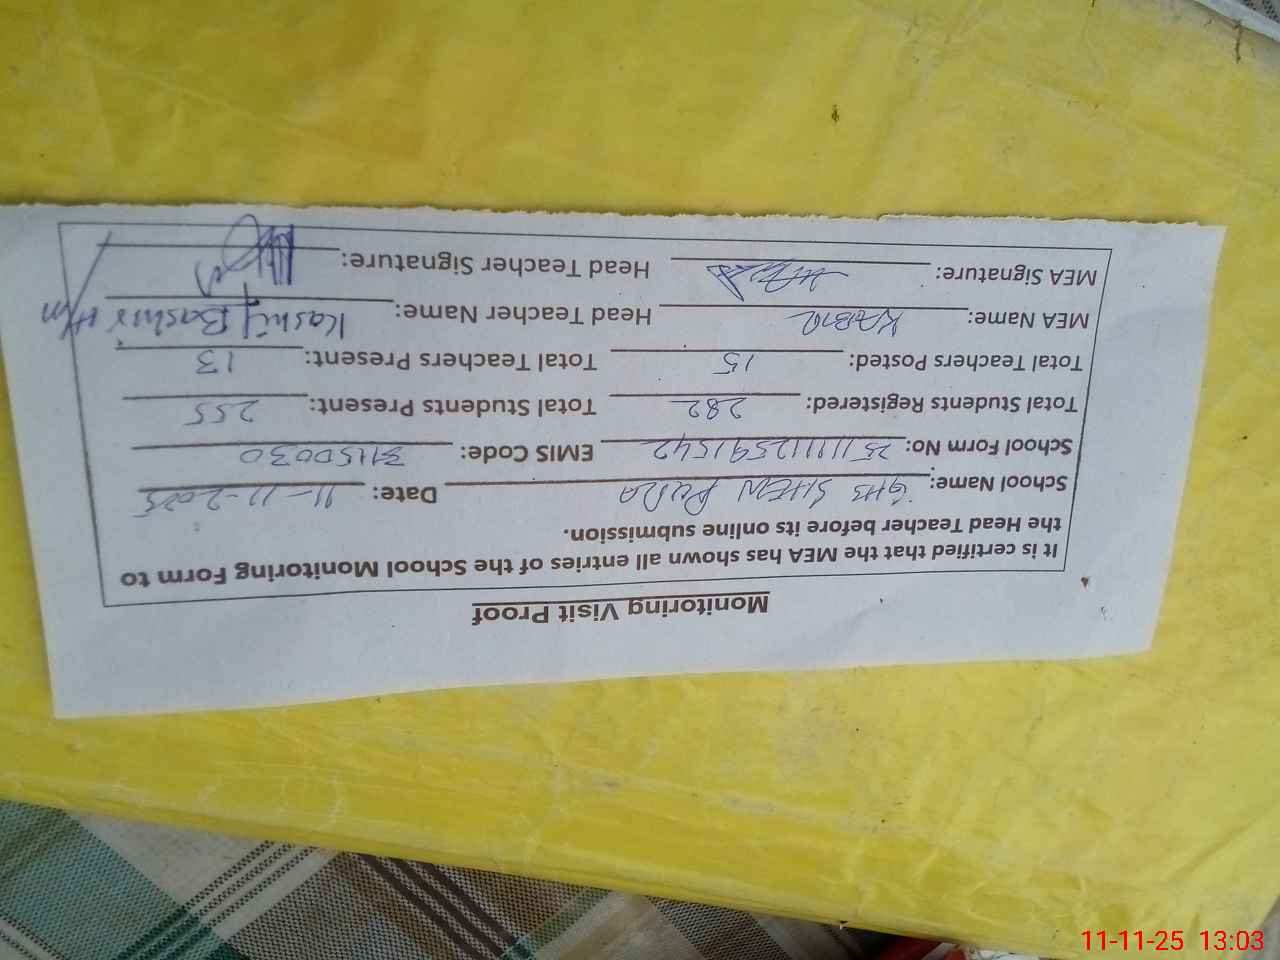 Monitoring Visit Proof
It is certified that the MEA has shown all entries of the School Monitoring Form to
the Head Teacher before its online submission.
School Name: GHS SHEN Date: 11-11-2025
School Form No: 25111111259 1542 EMIS Code: 31150030
Total Students Registered: 282 Total Students Present: 255
Total Teachers Posted: 15 Total Teachers Present: 13
MEA Name: KABIR Head Teacher Name: Kashif Bashir Hm
MEA Signature: Head Teacher Signature:
11-11-25 13:03